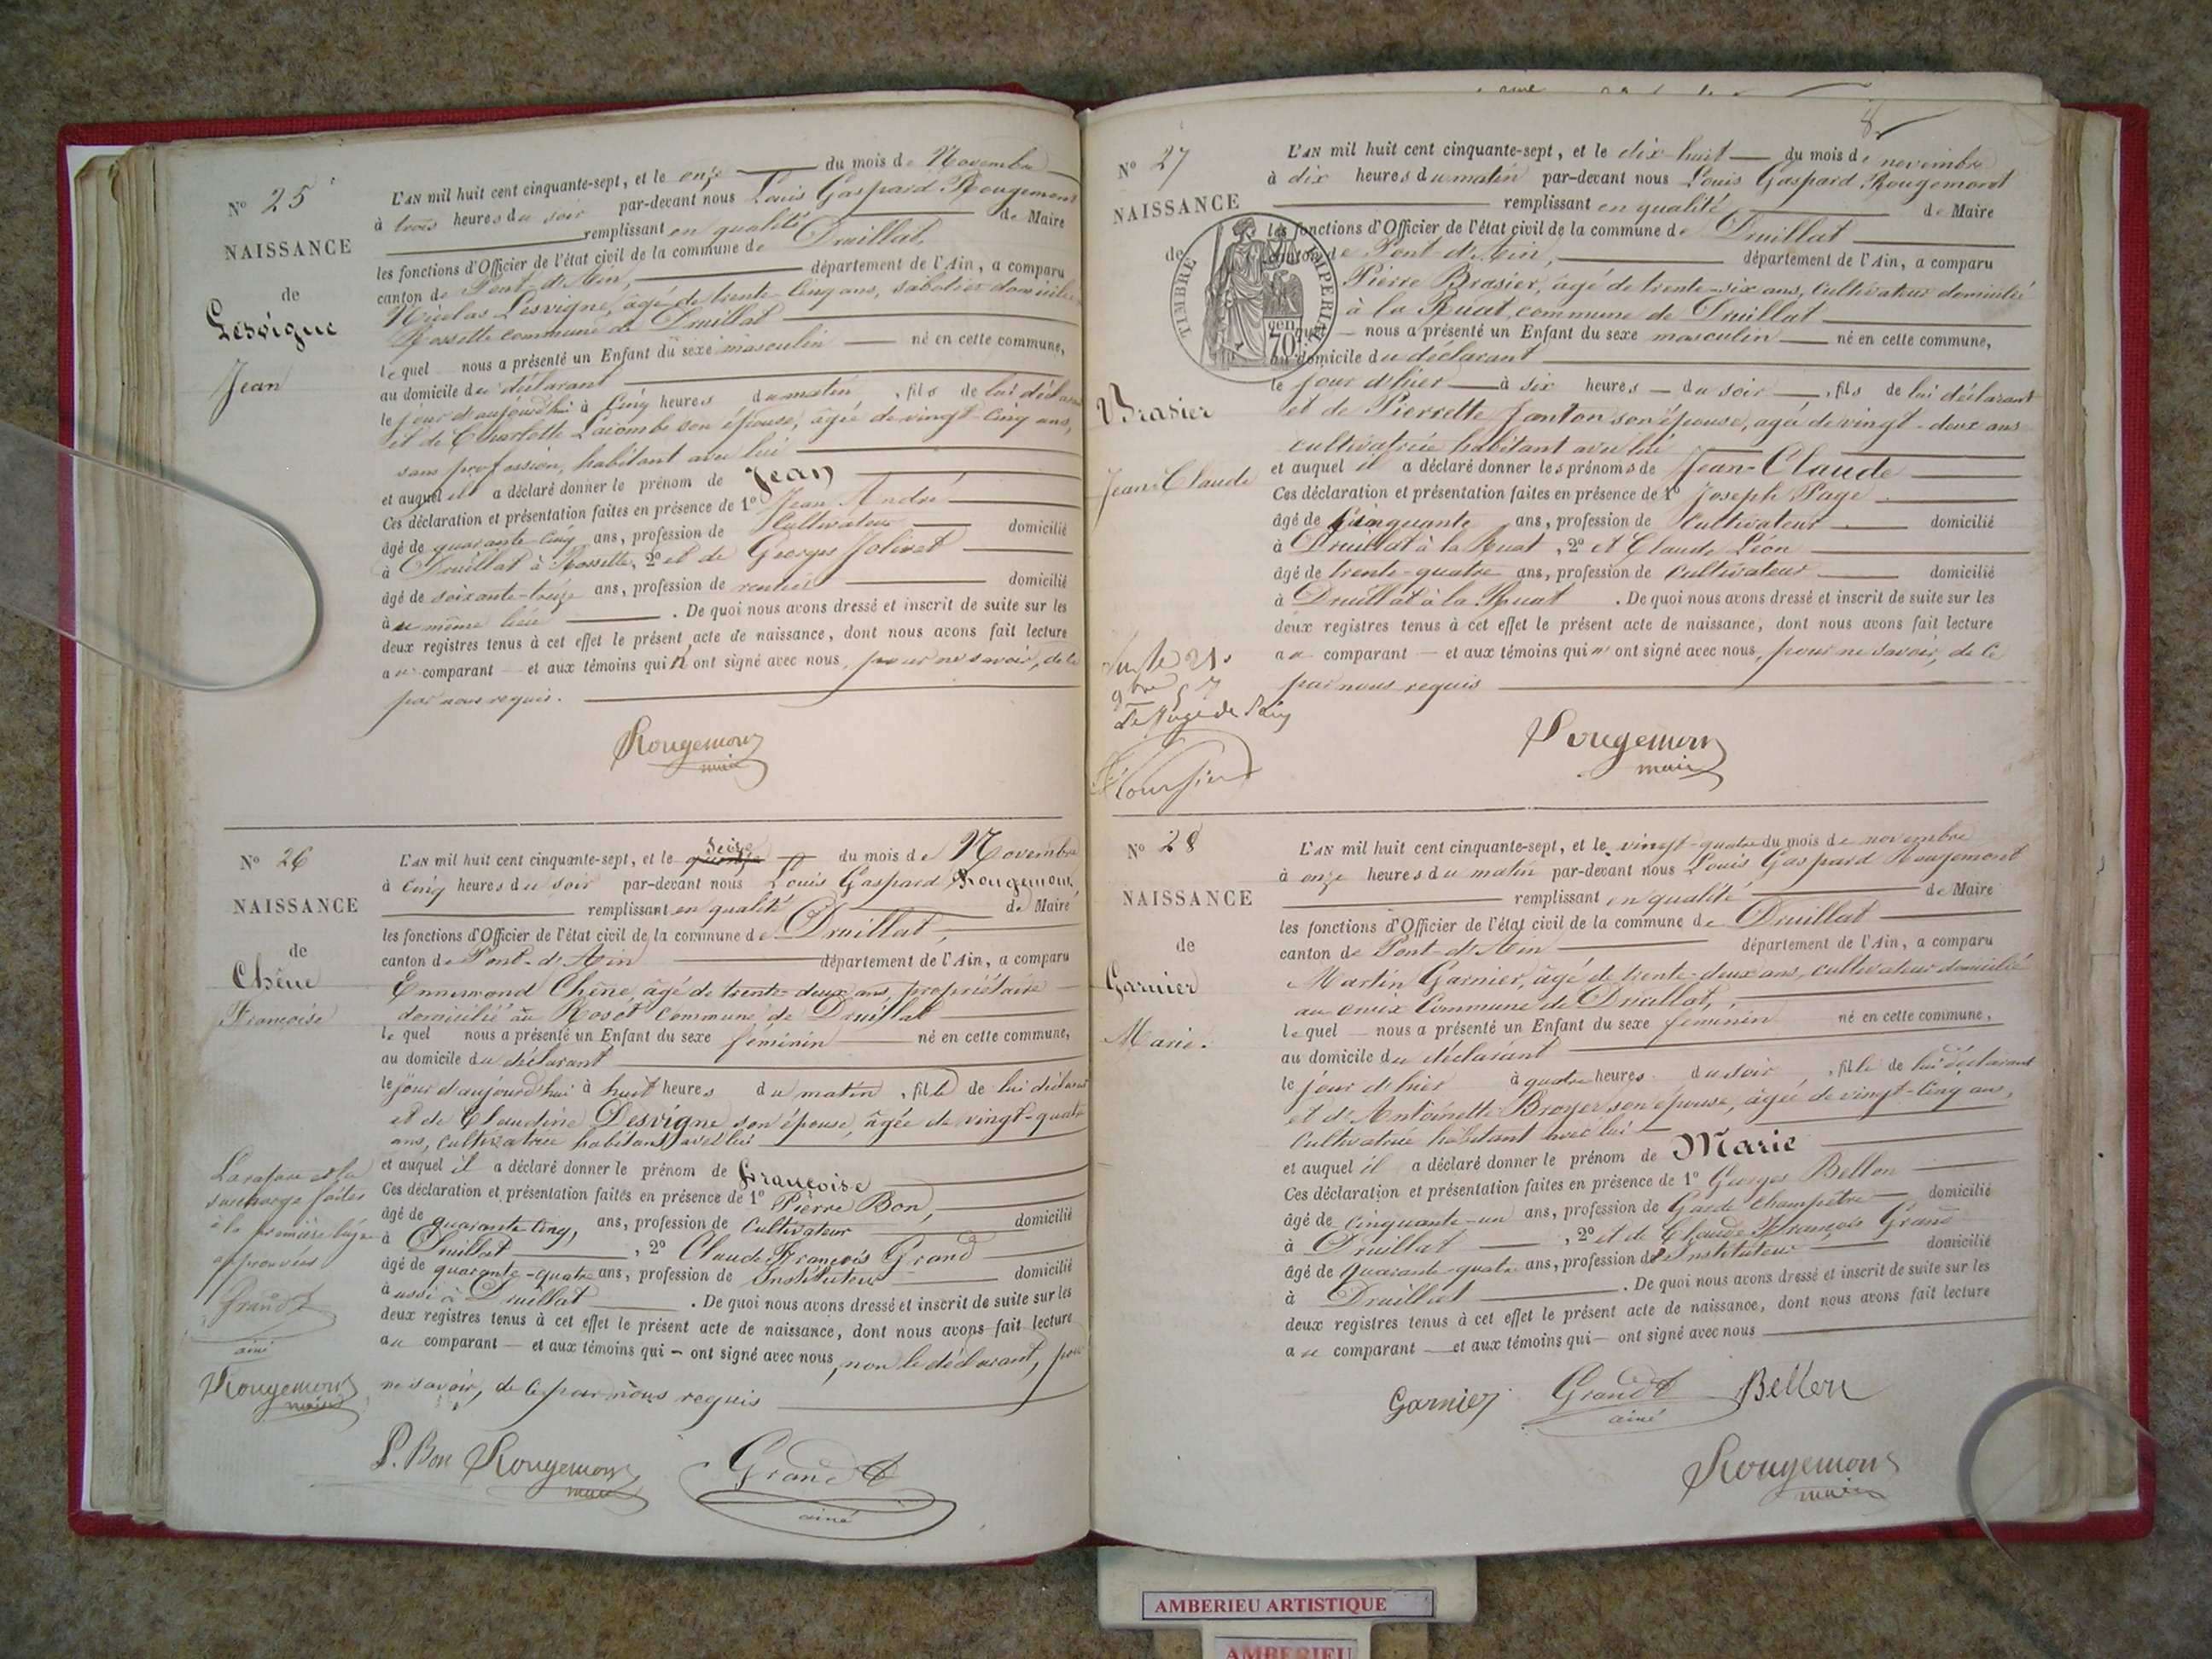 N° 25
NAISSANCE
de
Lesvigne
Jean
L'AN mil huit cent cinquante-sept, et le onze du mois de Novembre
à trois heures du soir par-devant nous Louis Gaspard Rougemont
remplissant en qualité de Maire
les fonctions d'Officier de l'état civil de la commune de Druillat,
canton de Pont-d'Ain, département de l'Ain, a comparu
Nicolas Lesvigne, âgé de trente-cinq ans, sabotier domicilié
Rossette commune de Druillat
lequel nous a présenté un Enfant du sexe masculin né en cette commune,
au domicile du déclarant
le jour d'aujourd'hui à cinq heures du matin, fils de lui déclarant
et de Charlotte Lacombe son épouse, âgée de vingt-cinq ans,
sans profession, habitant avec lui
et auquel il a déclaré donner le prénom de Jean
Ces déclaration et présentation faites en présence de 1° Jean André
âgé de quarante cinq ans, profession de Cultivateur domicilié
à Druillat à Rossette, 2° et de Georges Jolivet
âgé de soixante-treize ans, profession de rentier domicilié
au même lieu . De quoi nous avons dressé et inscrit de suite sur les
deux registres tenus à cet effet le présent acte de naissance, dont nous avons fait lecture
au comparant et aux témoins qui n'ont signé avec nous, pour ne savoir, de ce
par nous requis.
Rougemont
maire
N° 26
NAISSANCE
de
Chêne
Françoise
L'AN mil huit cent cinquante-sept, et le quinze seize du mois de Novembre
à cinq heures du soir par-devant nous Louis Gaspard Rougemont
remplissant en qualité de Maire
les fonctions d'Officier de l'état civil de la commune de Druillat,
canton de Pont-d'Ain département de l'Ain, a comparu
Ennemond Chêne, âgé de trente-deux ans, propriétaire
domicilié au Rosét Commune de Druillat
lequel nous a présenté un Enfant du sexe féminin né en cette commune,
au domicile du déclarant
le jour d'aujourd'hui à huit heures du matin, fille de lui déclarant
et de Claudine Desvigne son épouse, âgée de vingt-quatre
ans, cultivatrice habitant avec lui
et auquel il a déclaré donner le prénom de Françoise
Ces déclaration et présentation faites en présence de 1° Pierre Bon,
âgé de quarante cinq, ans, profession de Cultivateur domicilié
à Druillat, 2° Claude François Grand
âgé de quarante-quatre ans, profession de Instituteur domicilié
aussi à Druillat . De quoi nous avons dressé et inscrit de suite sur les
deux registres tenus à cet effet le présent acte de naissance, dont nous avons fait lecture
au comparant et aux témoins qui ont signé avec nous, non le déclarant, pour
ne savoir, de ce par nous requis
La rature et la
surcharge faites
à la première ligne
approuvées
Grand
ainé
Rougemont
maire
P. Bon Rougemont
maire
Grand
ainé
8
N° 27
NAISSANCE
de
Brasier
Jean-Claude
TIMBRE IMPERIAL
70
L'AN mil huit cent cinquante-sept, et le dix huit du mois de novembre
à dix heures du matin par-devant nous Louis Gaspard Rougemont
remplissant en qualité de Maire
les fonctions d'Officier de l'état civil de la commune de Druillat
canton de Pont-d'Ain, département de l'Ain, a comparu
Pierre Brasier, âgé de trente-six ans, Cultivateur domicilié
à la Ruat, commune de Druillat
lequel nous a présenté un Enfant du sexe masculin né en cette commune,
au domicile du déclarant
le jour d'hier à six heures du soir, fils de lui déclarant
et de Pierrette Janton son épouse, âgée de vingt-deux ans
cultivatrice habitant avec lui
et auquel il a déclaré donner les prénoms de Jean-Claude
Ces déclaration et présentation faites en présence de 1° Joseph Page
âgé de Cinquante ans, profession de Cultivateur domicilié
à Druillat à la Ruat, 2° et Claude Léon
âgé de trente-quatre ans, profession de Cultivateur domicilié
à Druillat à la Ruat . De quoi nous avons dressé et inscrit de suite sur les
deux registres tenus à cet effet le présent acte de naissance, dont nous avons fait lecture
au comparant et aux témoins qui n'ont signé avec nous, pour ne savoir, de ce
par nous requis
21
9bre 57
Le Juge de Paix
Rougemont
maire
N° 28
NAISSANCE
de
Garnier
Marie.
L'AN mil huit cent cinquante-sept, et le vingt-quatre du mois de novembre
à onze heures du matin par-devant nous Louis Gaspard Rougemont
remplissant en qualité de Maire
les fonctions d'Officier de l'état civil de la commune de Druillat
canton de Pont-d'Ain département de l'Ain, a comparu
Martin Garnier, âgé de trente-deux ans, cultivateur domicilié
au Commune de Druillat,
lequel nous a présenté un Enfant du sexe féminin né en cette commune,
au domicile du déclarant
le jour d'hier à quatre heures du soir, fille de lui déclarant
et d'Antoinette Broyer son épouse, âgée de vingt-cinq ans,
Cultivatrice habitant avec lui
et auquel il a déclaré donner le prénom de Marie
Ces déclaration et présentation faites en présence de 1° Georges Bellon
âgé de cinquante-un ans, profession de Garde Champêtre domicilié
à Druillat, 2° et de Claude François Grand
âgé de quarante-quatre ans, profession de Instituteur domicilié
à Druillat . De quoi nous avons dressé et inscrit de suite sur les
deux registres tenus à cet effet le présent acte de naissance, dont nous avons fait lecture
au comparant et aux témoins qui ont signé avec nous
Garnier Grand Bellon
ainé
Rougemont
maire
AMBERIEU ARTISTIQUE
AMBERIEU